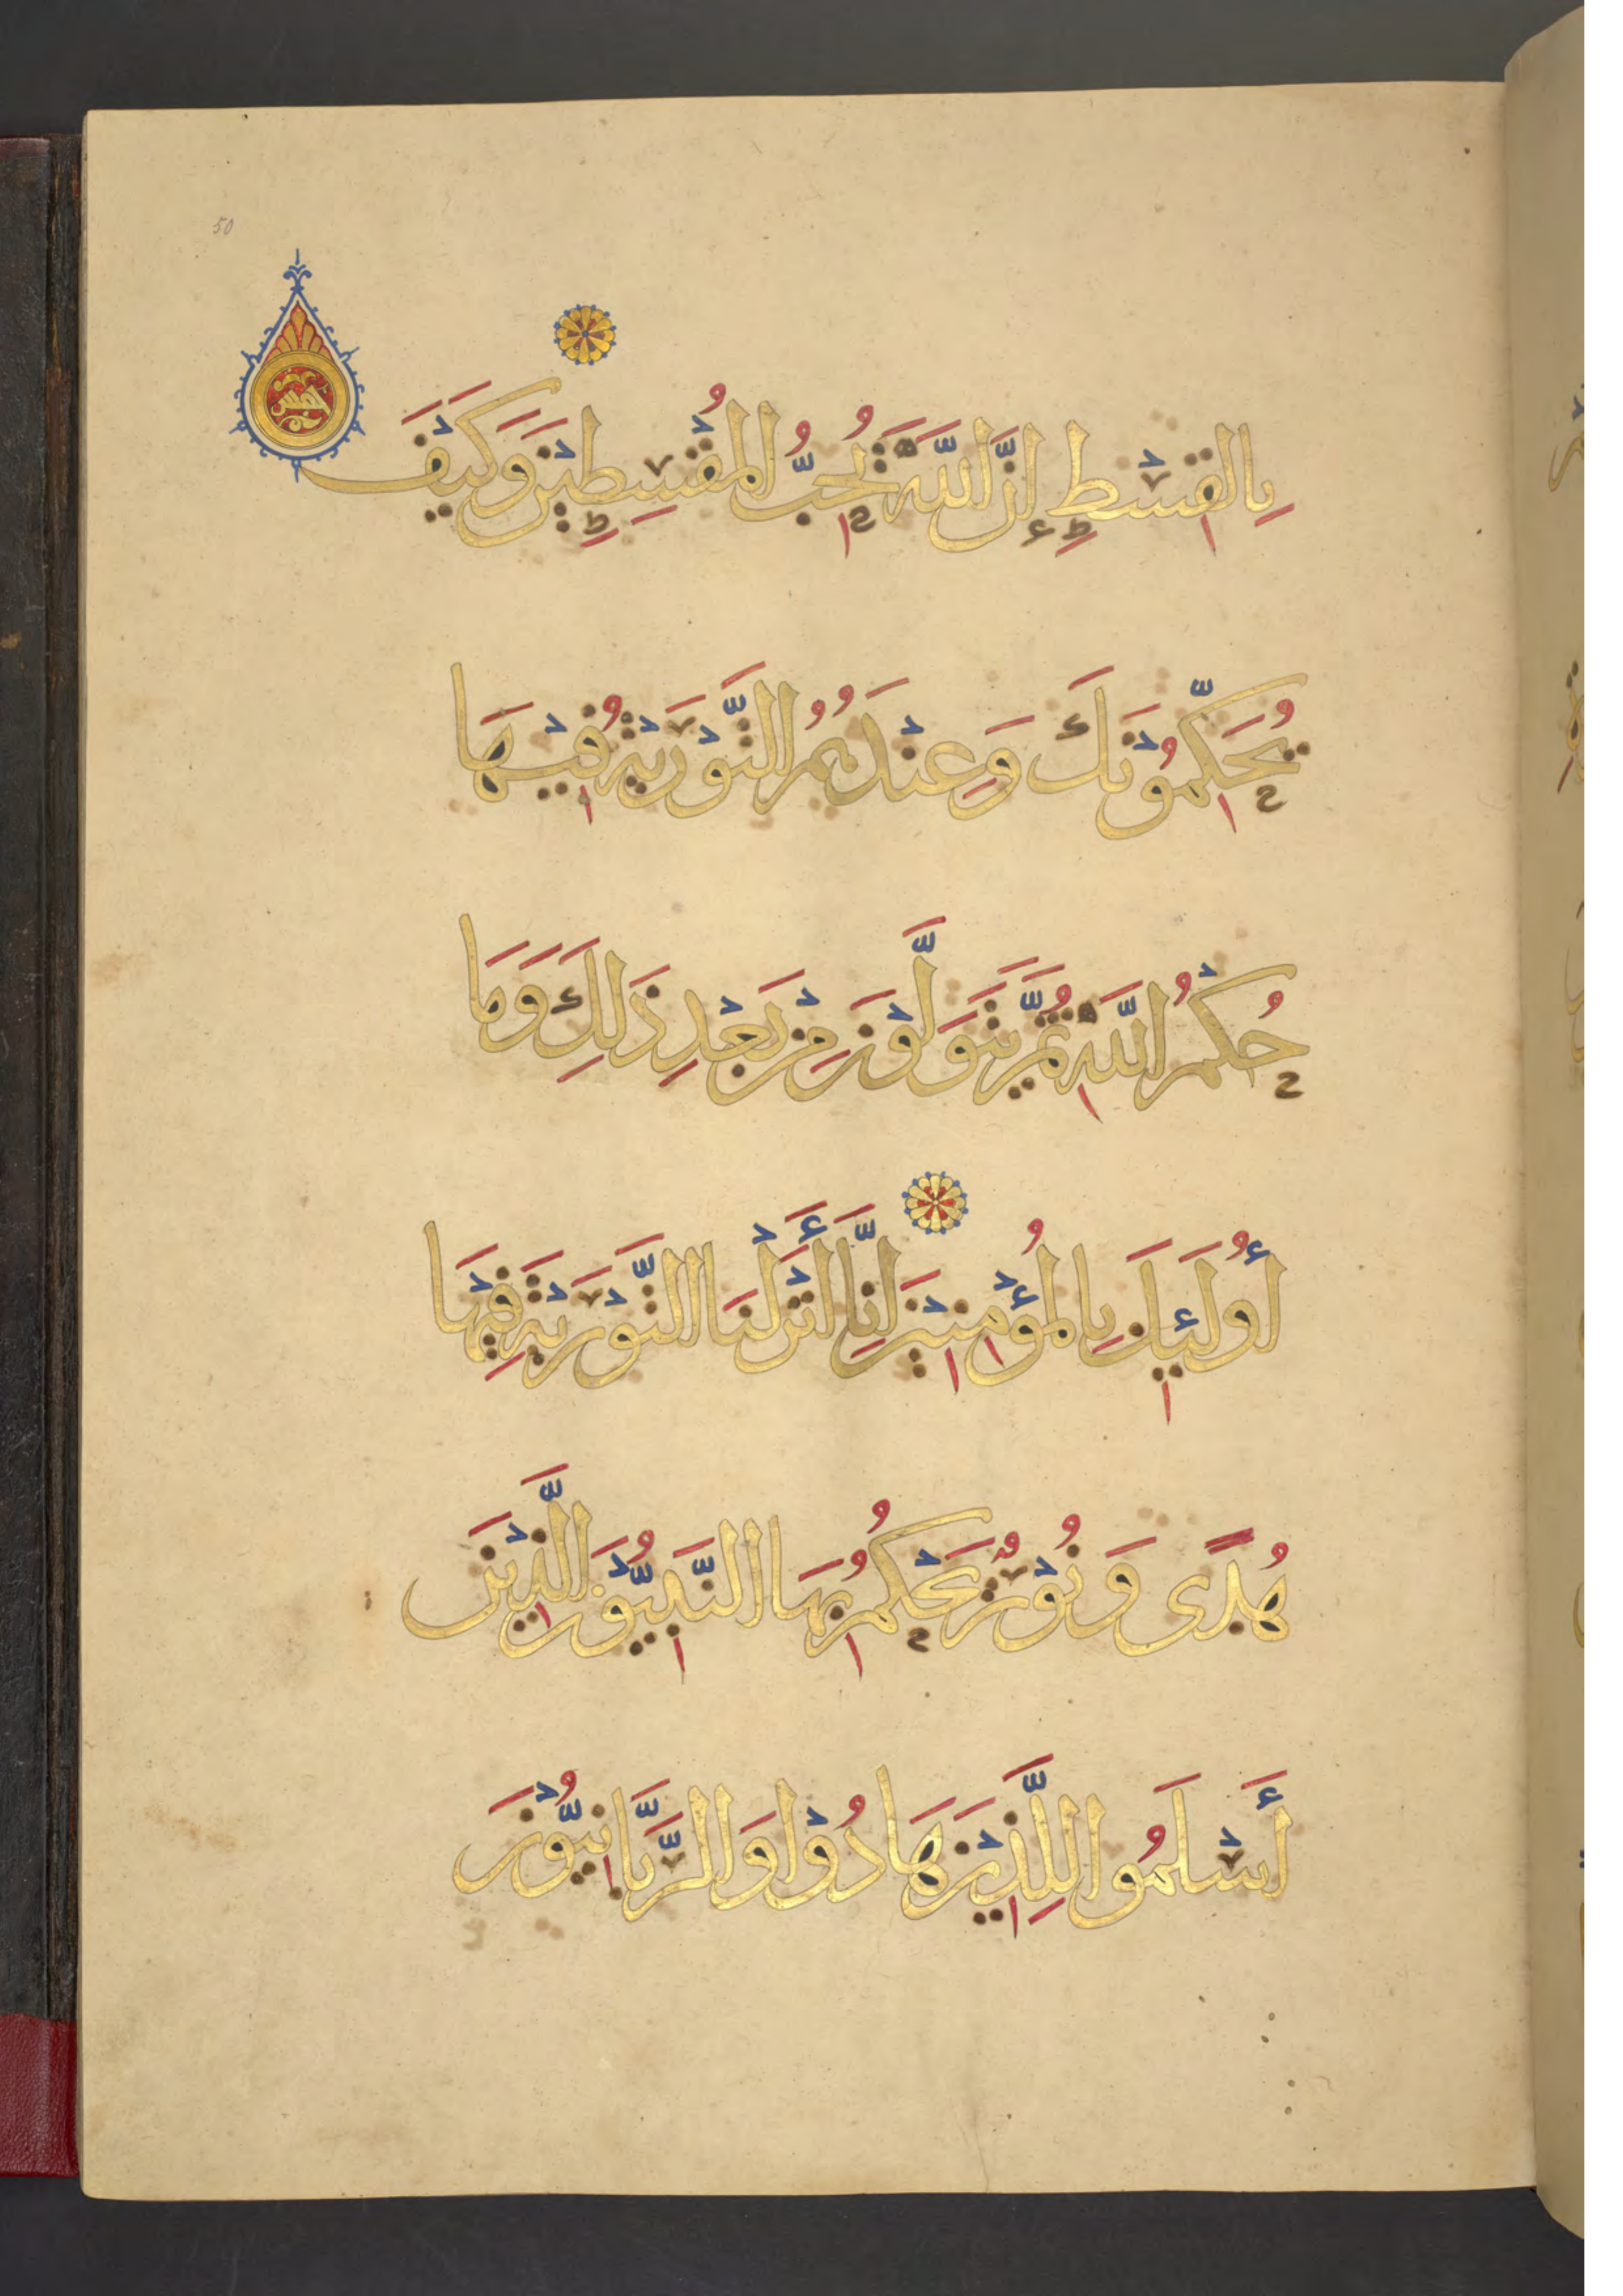 50
بِالْقِسْطِ إِنَّ اللَّهَ يُحِبُّ الْمُقْسِطِيْنَ وَكَيْفَ
يُحَكِّمُوْنَكَ وَعِنْدَهُمُ التَّوْرَيٰةُ فِيْهَا
حُكْمُ اللَّهِ ثُمَّ يَتَوَلَّوْنَ مِنْ بَعْدِ ذَلِكَ وَمَا
أُولَئِكَ بِالْمُؤْمِنِيْنَ إِنَّا أَنْزَلْنَا التَّوْرَيٰةَ فِيْهَا
هُدًى وَنُوْرٌ يَحْكُمُ بِهَا النَّبِيُّوْنَ الَّذِيْنَ
أَسْلَمُوا لِلَّذِيْنَ هَادُوْا وَالرَّبَّانِيُّوْنَ